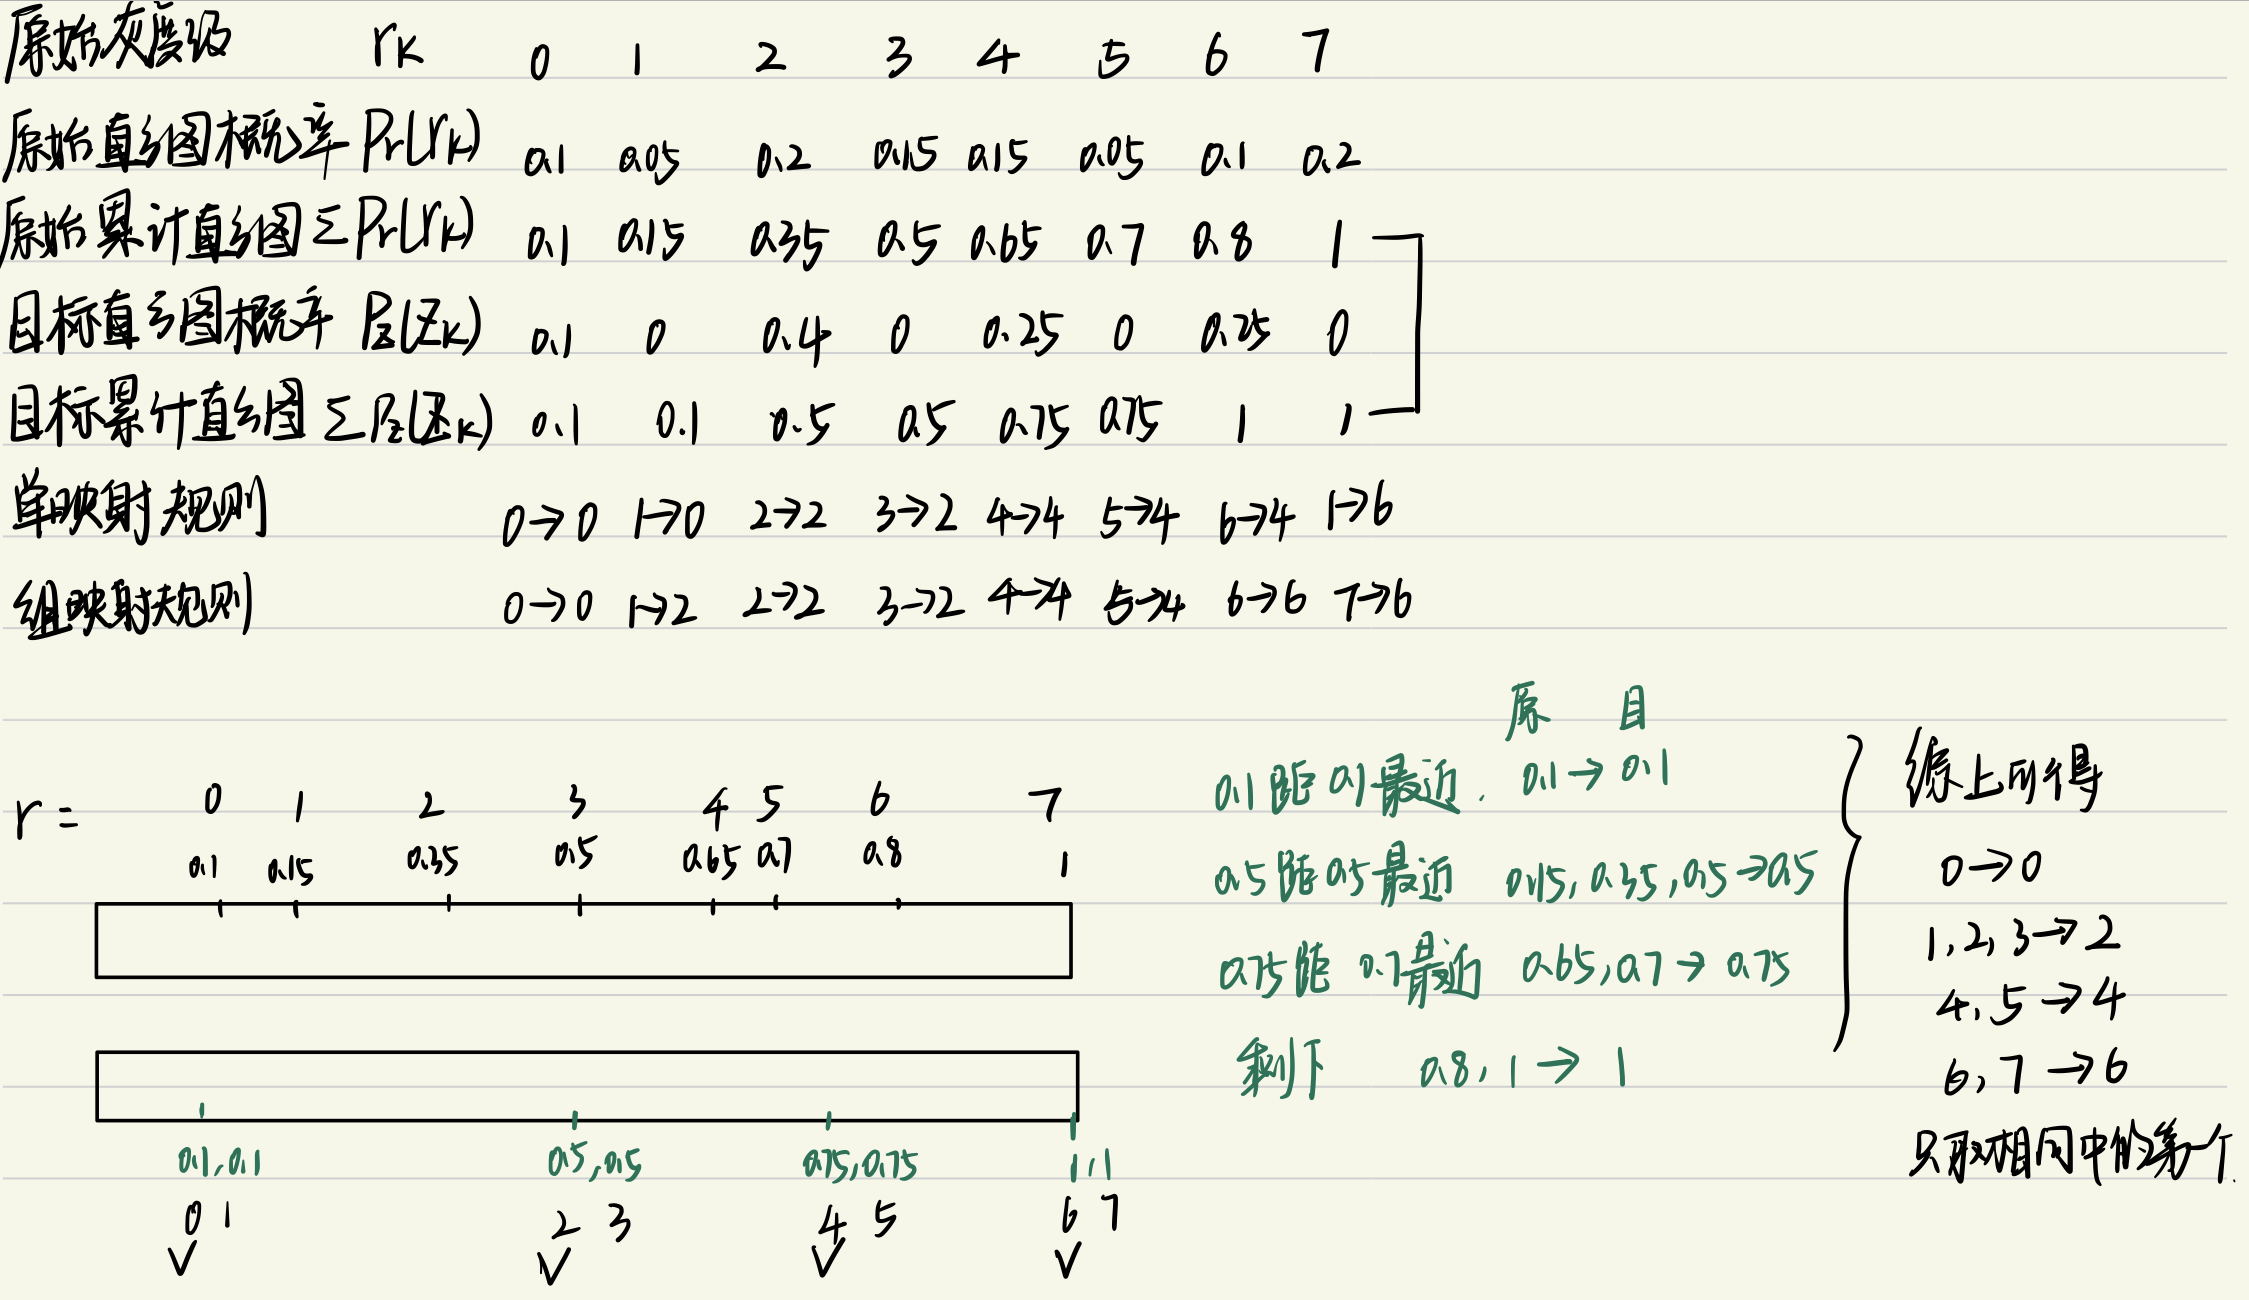 原始灰度级 rk 0 1 2 3 4 5 6 7
原始直方图概率 Pr(rk) 0.1 0.05 0.2 0.15 0.15 0.05 0.1 0.2
原始累计直方图 ΣPr(rk) 0.1 0.15 0.35 0.5 0.65 0.7 0.8 1
目标直方图概率 Pz(Zk) 0.1 0 0.4 0 0.25 0 0.25 0
目标累计直方图 ΣPz(Zk) 0.1 0.1 0.5 0.5 0.75 0.75 1 1
单映射规则 0→0 1→0 2→2 3→2 4→4 5→4 6→4 1→6
组映射规则 0→0 1→2 2→2 3→2 4→4 5→4 6→6 7→6
原 目
r = 0 1 2 3 4 5 6 7
0.1 0.15 0.35 0.5 0.65 0.7 0.8 1
0.1,0.1 0.5,0.5 0.75,0.75 1,1
0 1 2 3 4 5 6 7
0.1距0.1最近. 0.1→0.1
0.5距0.5最近 0.15,0.35,0.5→0.5
0.75距0.7最近 0.65,0.7→0.75
剩下 0.8,1→1
综上所得
0→0
1,2,3→2
4,5→4
6,7→6
只取相同中的第一个.